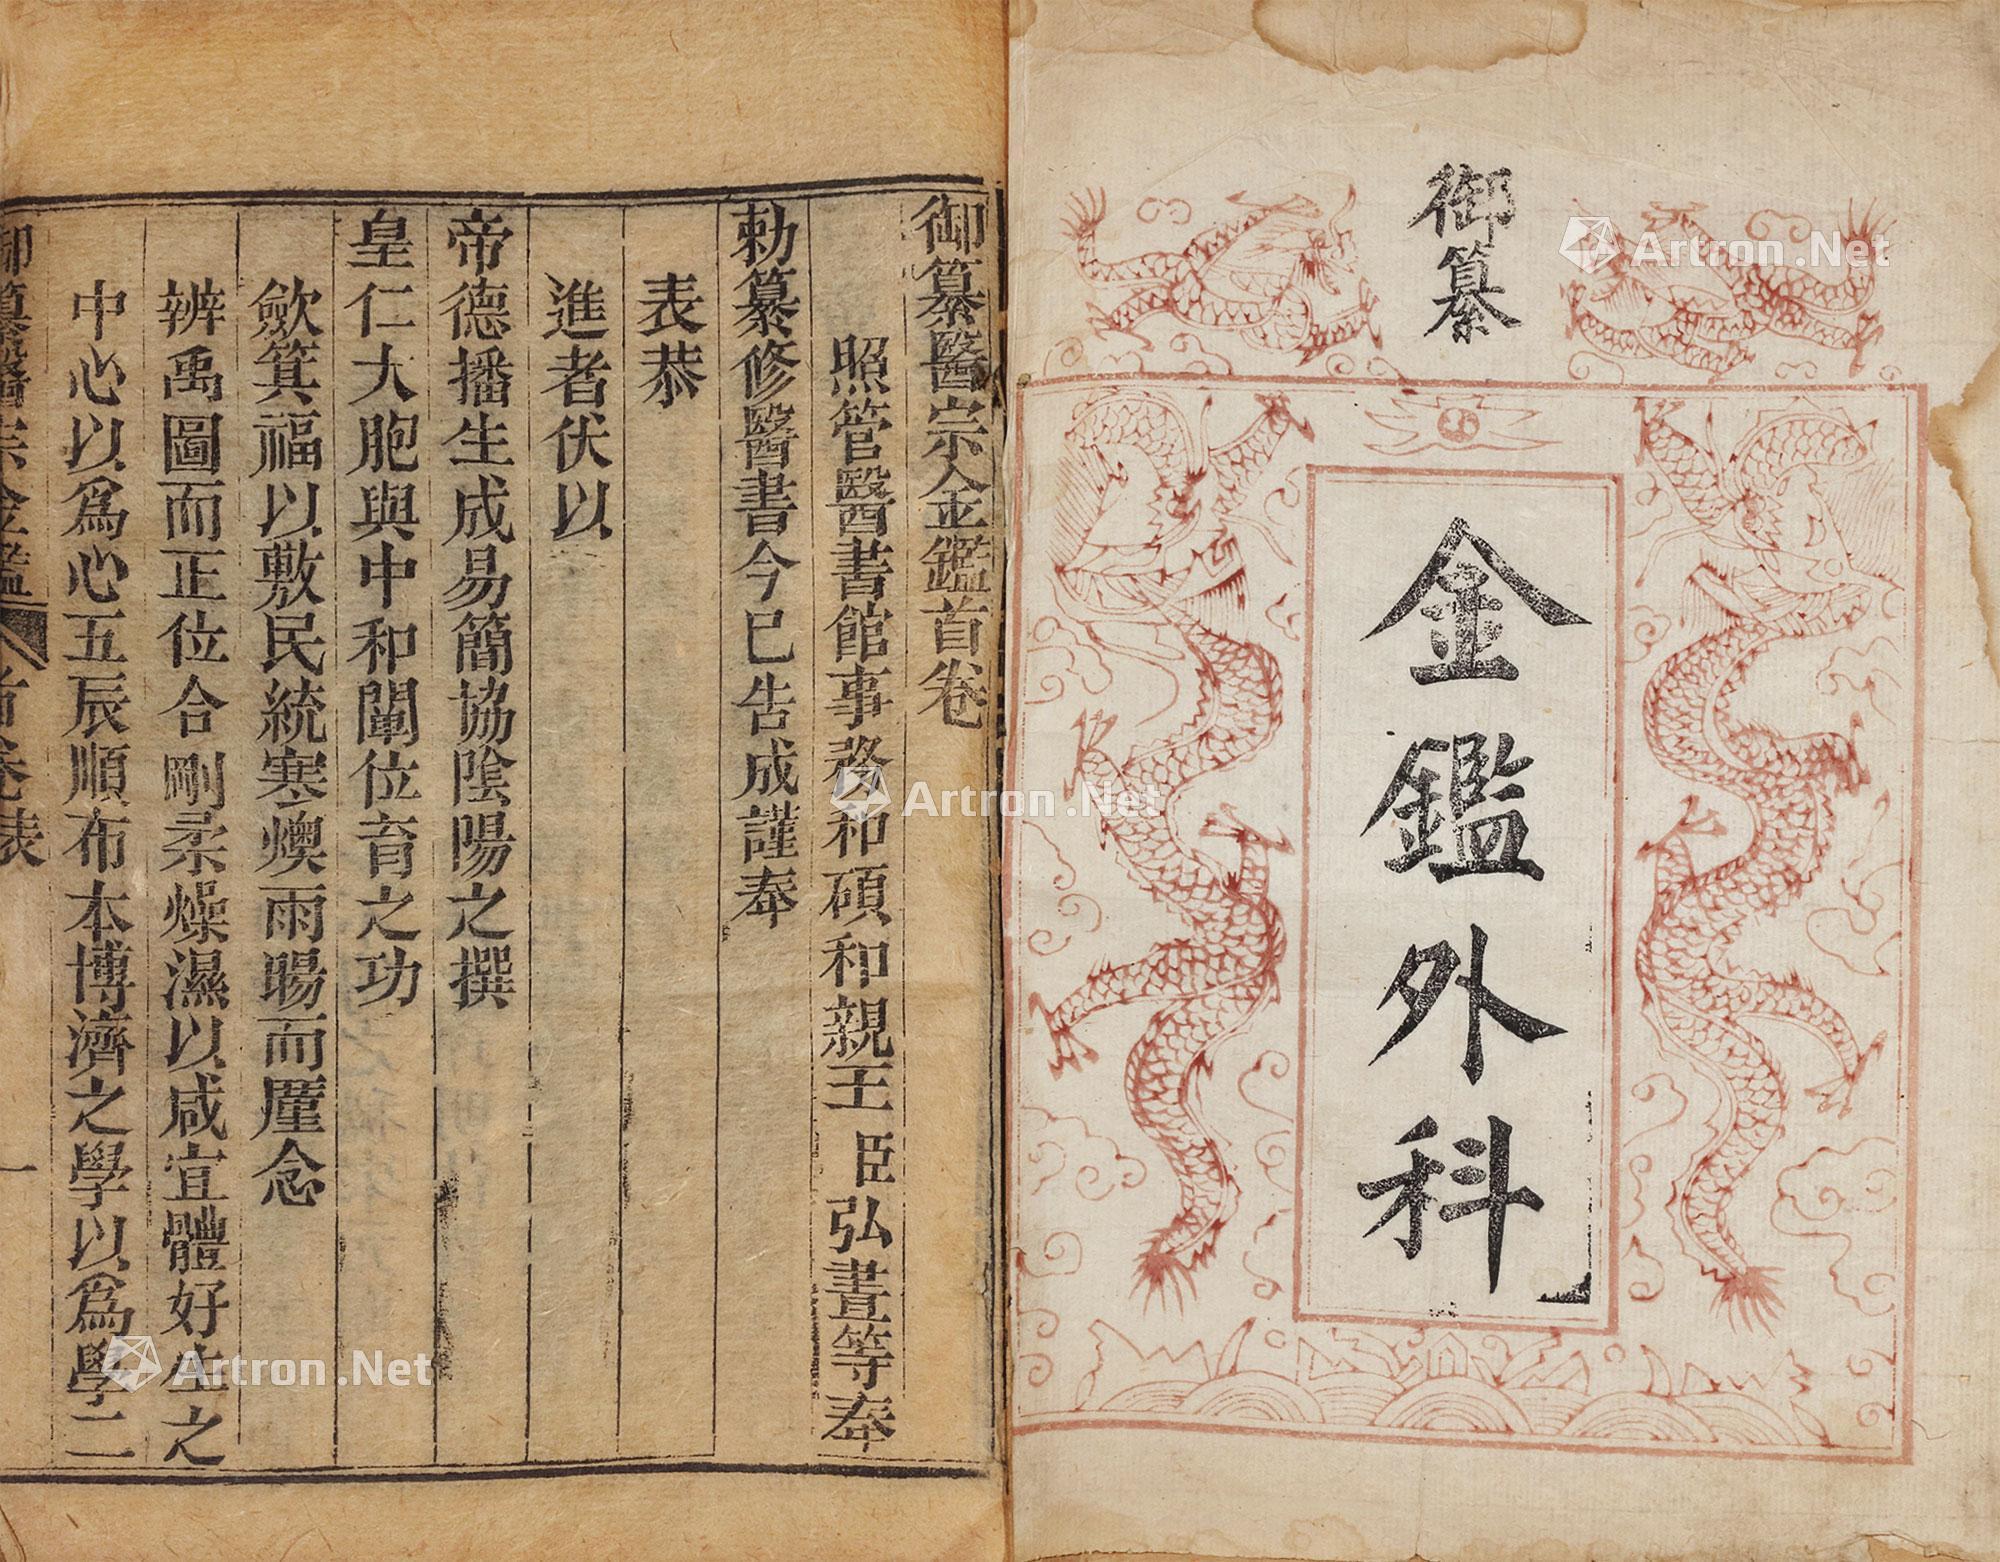 御纂
金鑑外科
御纂醫宗金鑑首卷
照管醫書館事務和碩和親王臣弘晝等奉
勅纂修醫書今已告成謹奉
表恭
進者伏以
帝德播生成易簡協陰陽之撰
皇仁大胞與中和闡位育之功
歛箕福以敷民統寒燠雨暘而厪念
辨禹圖而正位合剛柔燥濕以咸宜體好生之
中心以爲心五辰順布本博濟之學以爲學二
御纂醫宗金鑑 首卷表 一
Artron.Net
Artron.Net
Artron.Net